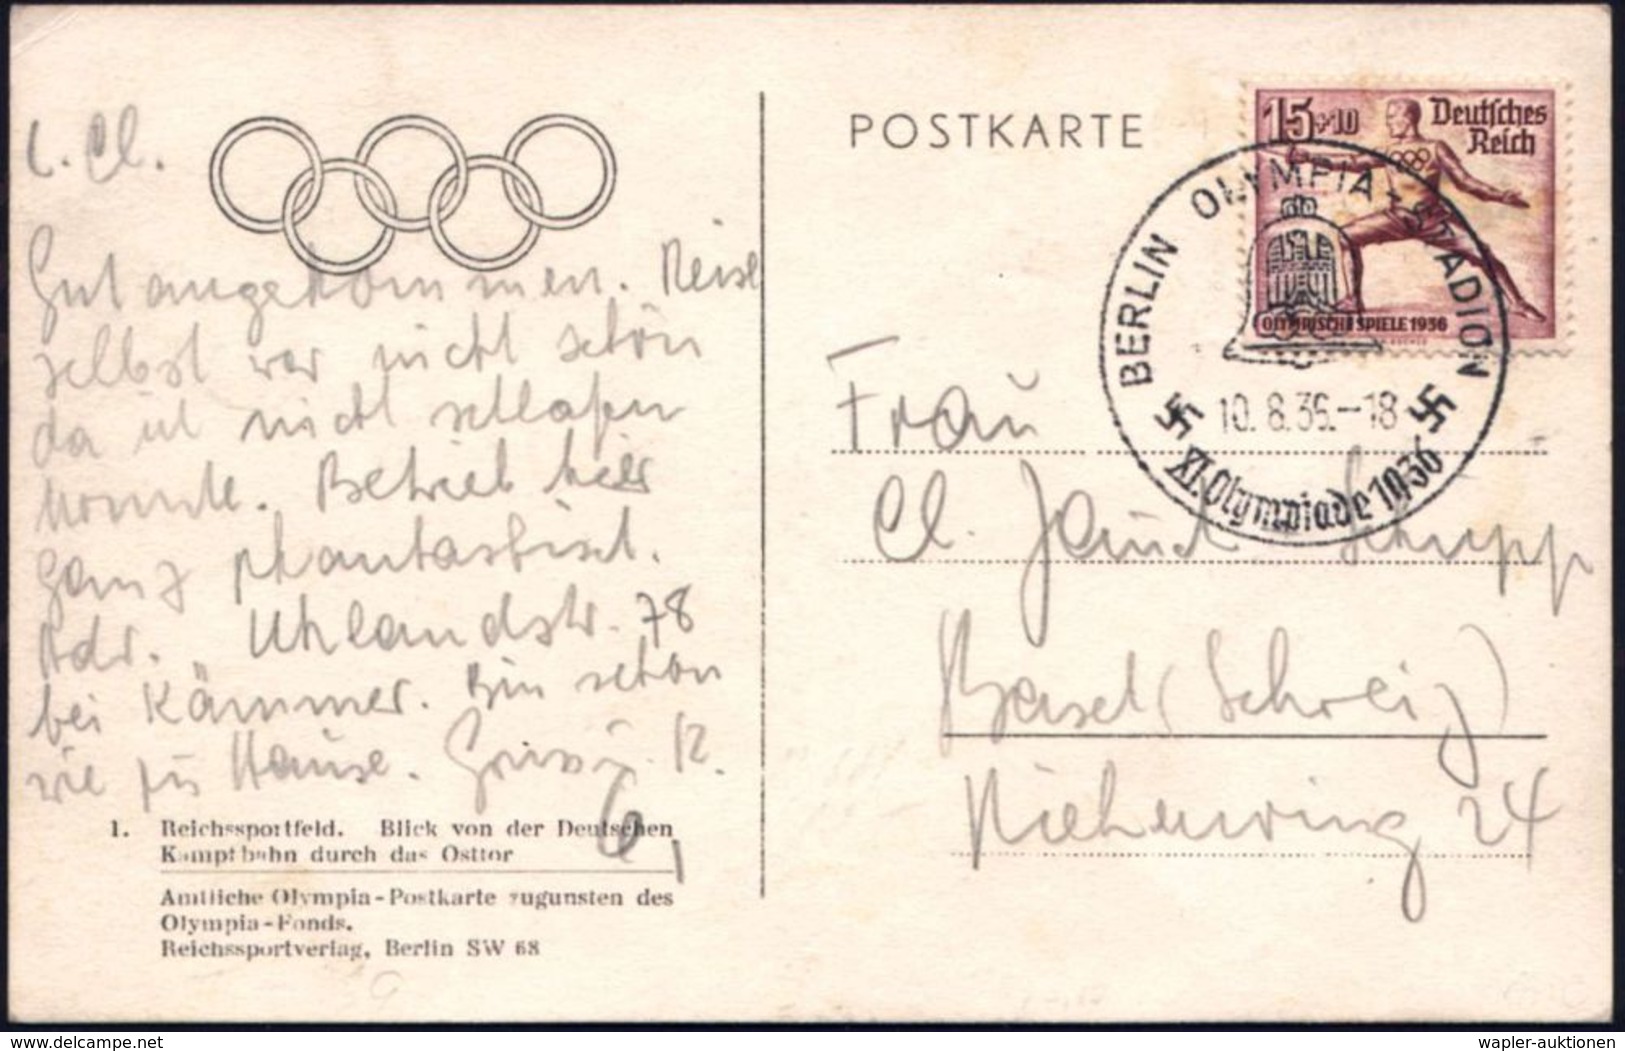 L. Cl.
Gut angekommen. Reise
selbst war nicht schön
da ich nicht schlafen
konnte. Betrieb hier
ganz phantastisch.
Adr. Uhlandstr. 78
bei Kämmer. Bin schon
wie zu Hause.
1. Reichssportfeld. Blick von der Deutschen
Kampfbahn durch das Osttor
Amtliche Olympia-Postkarte zugunsten des
Olympia-Fonds.
Reichssportverlag, Berlin SW 68
POSTKARTE
15+10 Deutsches
Reich
OLYMPISCHE SPIELE 1936
BERLIN OLYMPIA-STADION
10.8.36.-18
XI. Olympiade 1936
Frau
Cl. Schupp
Basel (Schweiz)
24
delcampe.net
wapler-auktionen